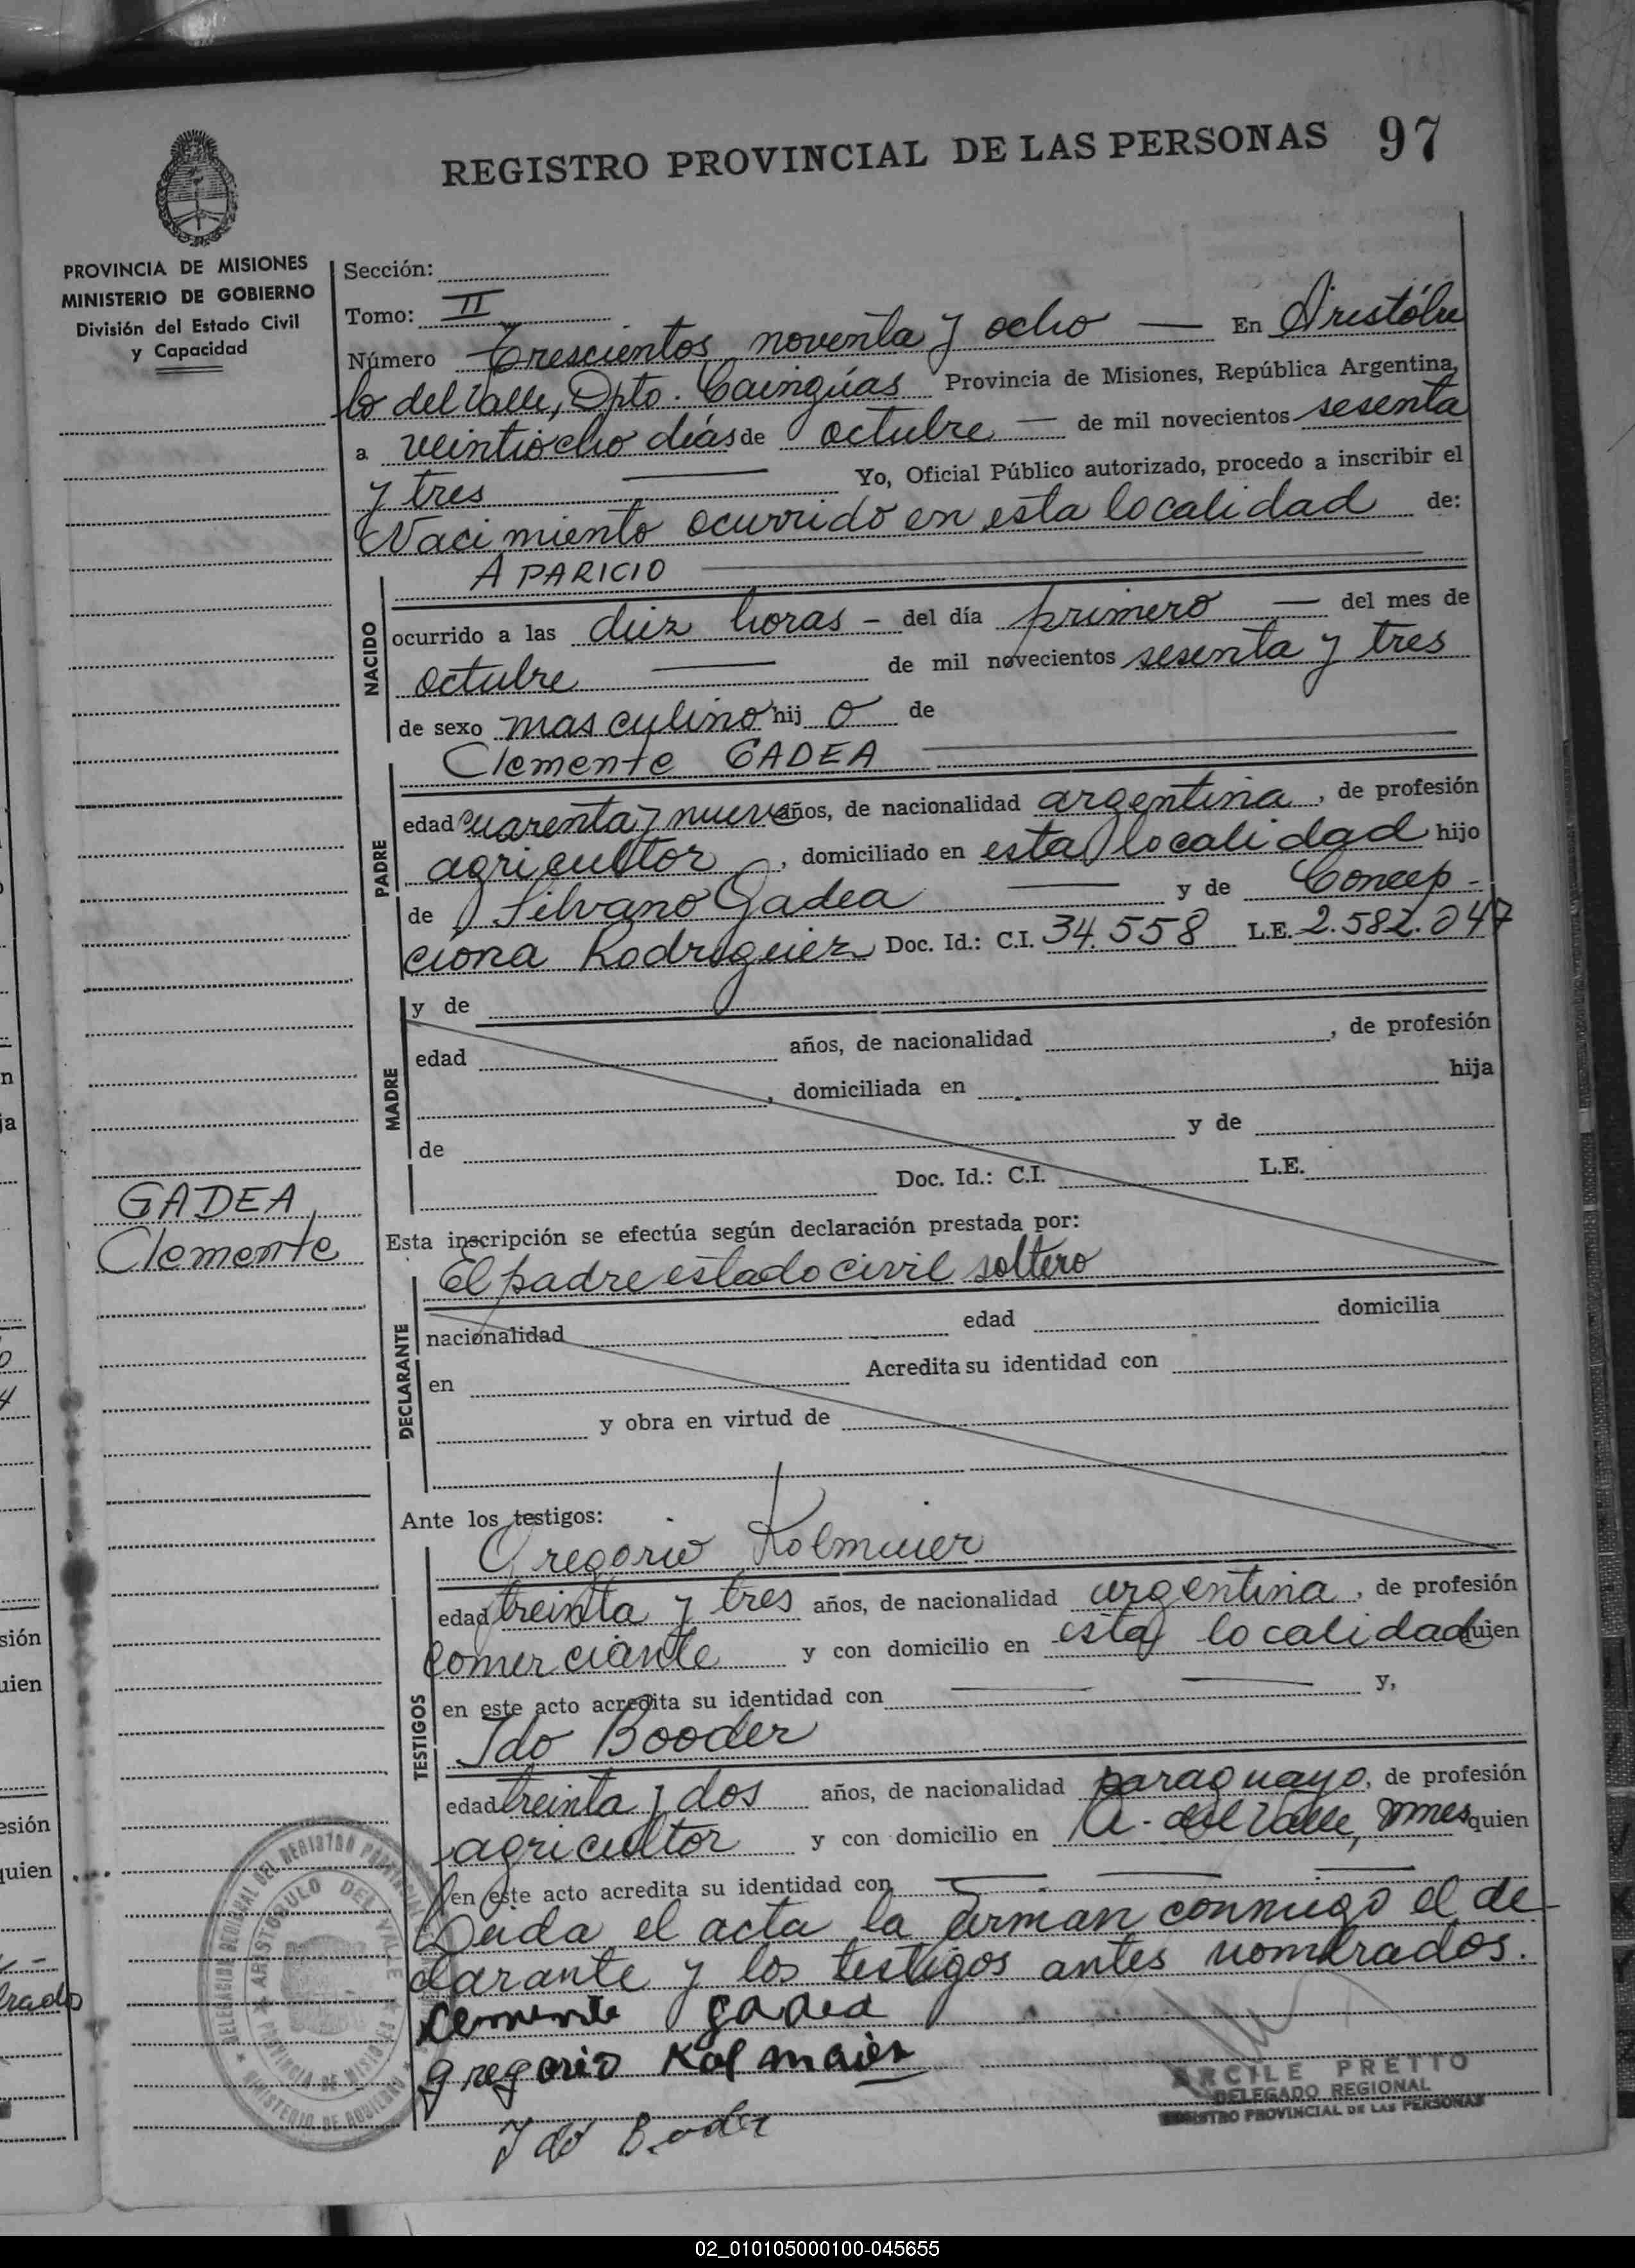 REGISTRO PROVINCIAL DE LAS PERSONAS 97
PROVINCIA DE MISIONES
MINISTERIO DE GOBIERNO
División del Estado Civil
y Capacidad
Sección:
Tomo: II
Número Trescientos noventa y ocho — En Aristóbu
lo del Valle, Dpto. Cainguas Provincia de Misiones, República Argentina,
a veintiocho días de octubre — de mil novecientos sesenta
y tres — Yo, Oficial Público autorizado, procedo a inscribir el
Nacimiento ocurrido en esta localidad de:
NACIDO
APARICIO
ocurrido a las diez horas - del día primero — del mes de
octubre — de mil novecientos sesenta y tres
de sexo masculino hij o de
PADRE
Clemente GADEA
edad cuarenta y nueve años, de nacionalidad argentina, de profesión
agricultor, domiciliado en esta localidad hijo
de Silvano Gadea — y de Concep-
ciona Rodriguez Doc. Id.: C.I. 34.558 L.E. 2.582.047
MADRE
y de
edad años, de nacionalidad , de profesión
, domiciliada en hija
de y de
Doc. Id.: C.I. L.E.
GADEA
Clemente
Esta inscripción se efectúa según declaración prestada por:
DECLARANTE
El padre estado civil soltero
nacionalidad edad domicilia
en Acredita su identidad con
y obra en virtud de
Ante los testigos:
TESTIGOS
Gregorio Kolmaier
edad treinta y tres años, de nacionalidad argentina, de profesión
comerciante y con domicilio en esta localidad quien
en este acto acredita su identidad con — — y,
Ido Booder
edad treinta y dos años, de nacionalidad paraguayo, de profesión
agricultor y con domicilio en A. del Valle, Mnes quien
en este acto acredita su identidad con — — —
Leida el acta la firman conmigo el de-
clarante y los testigos antes nombrados.
Clemente gadea
gregorio Kolmaier
Ido Booder
ARCILE PRETTO
DELEGADO REGIONAL
REGISTRO PROVINCIAL DE LAS PERSONAS
DELEGACION REGIONAL DEL REGISTRO PROVINCIAL
ARISTOBULO DEL VALLE
PROVINCIA DE MISIONES
MINISTERIO DE GOBIERNO
02_010105000100-045655